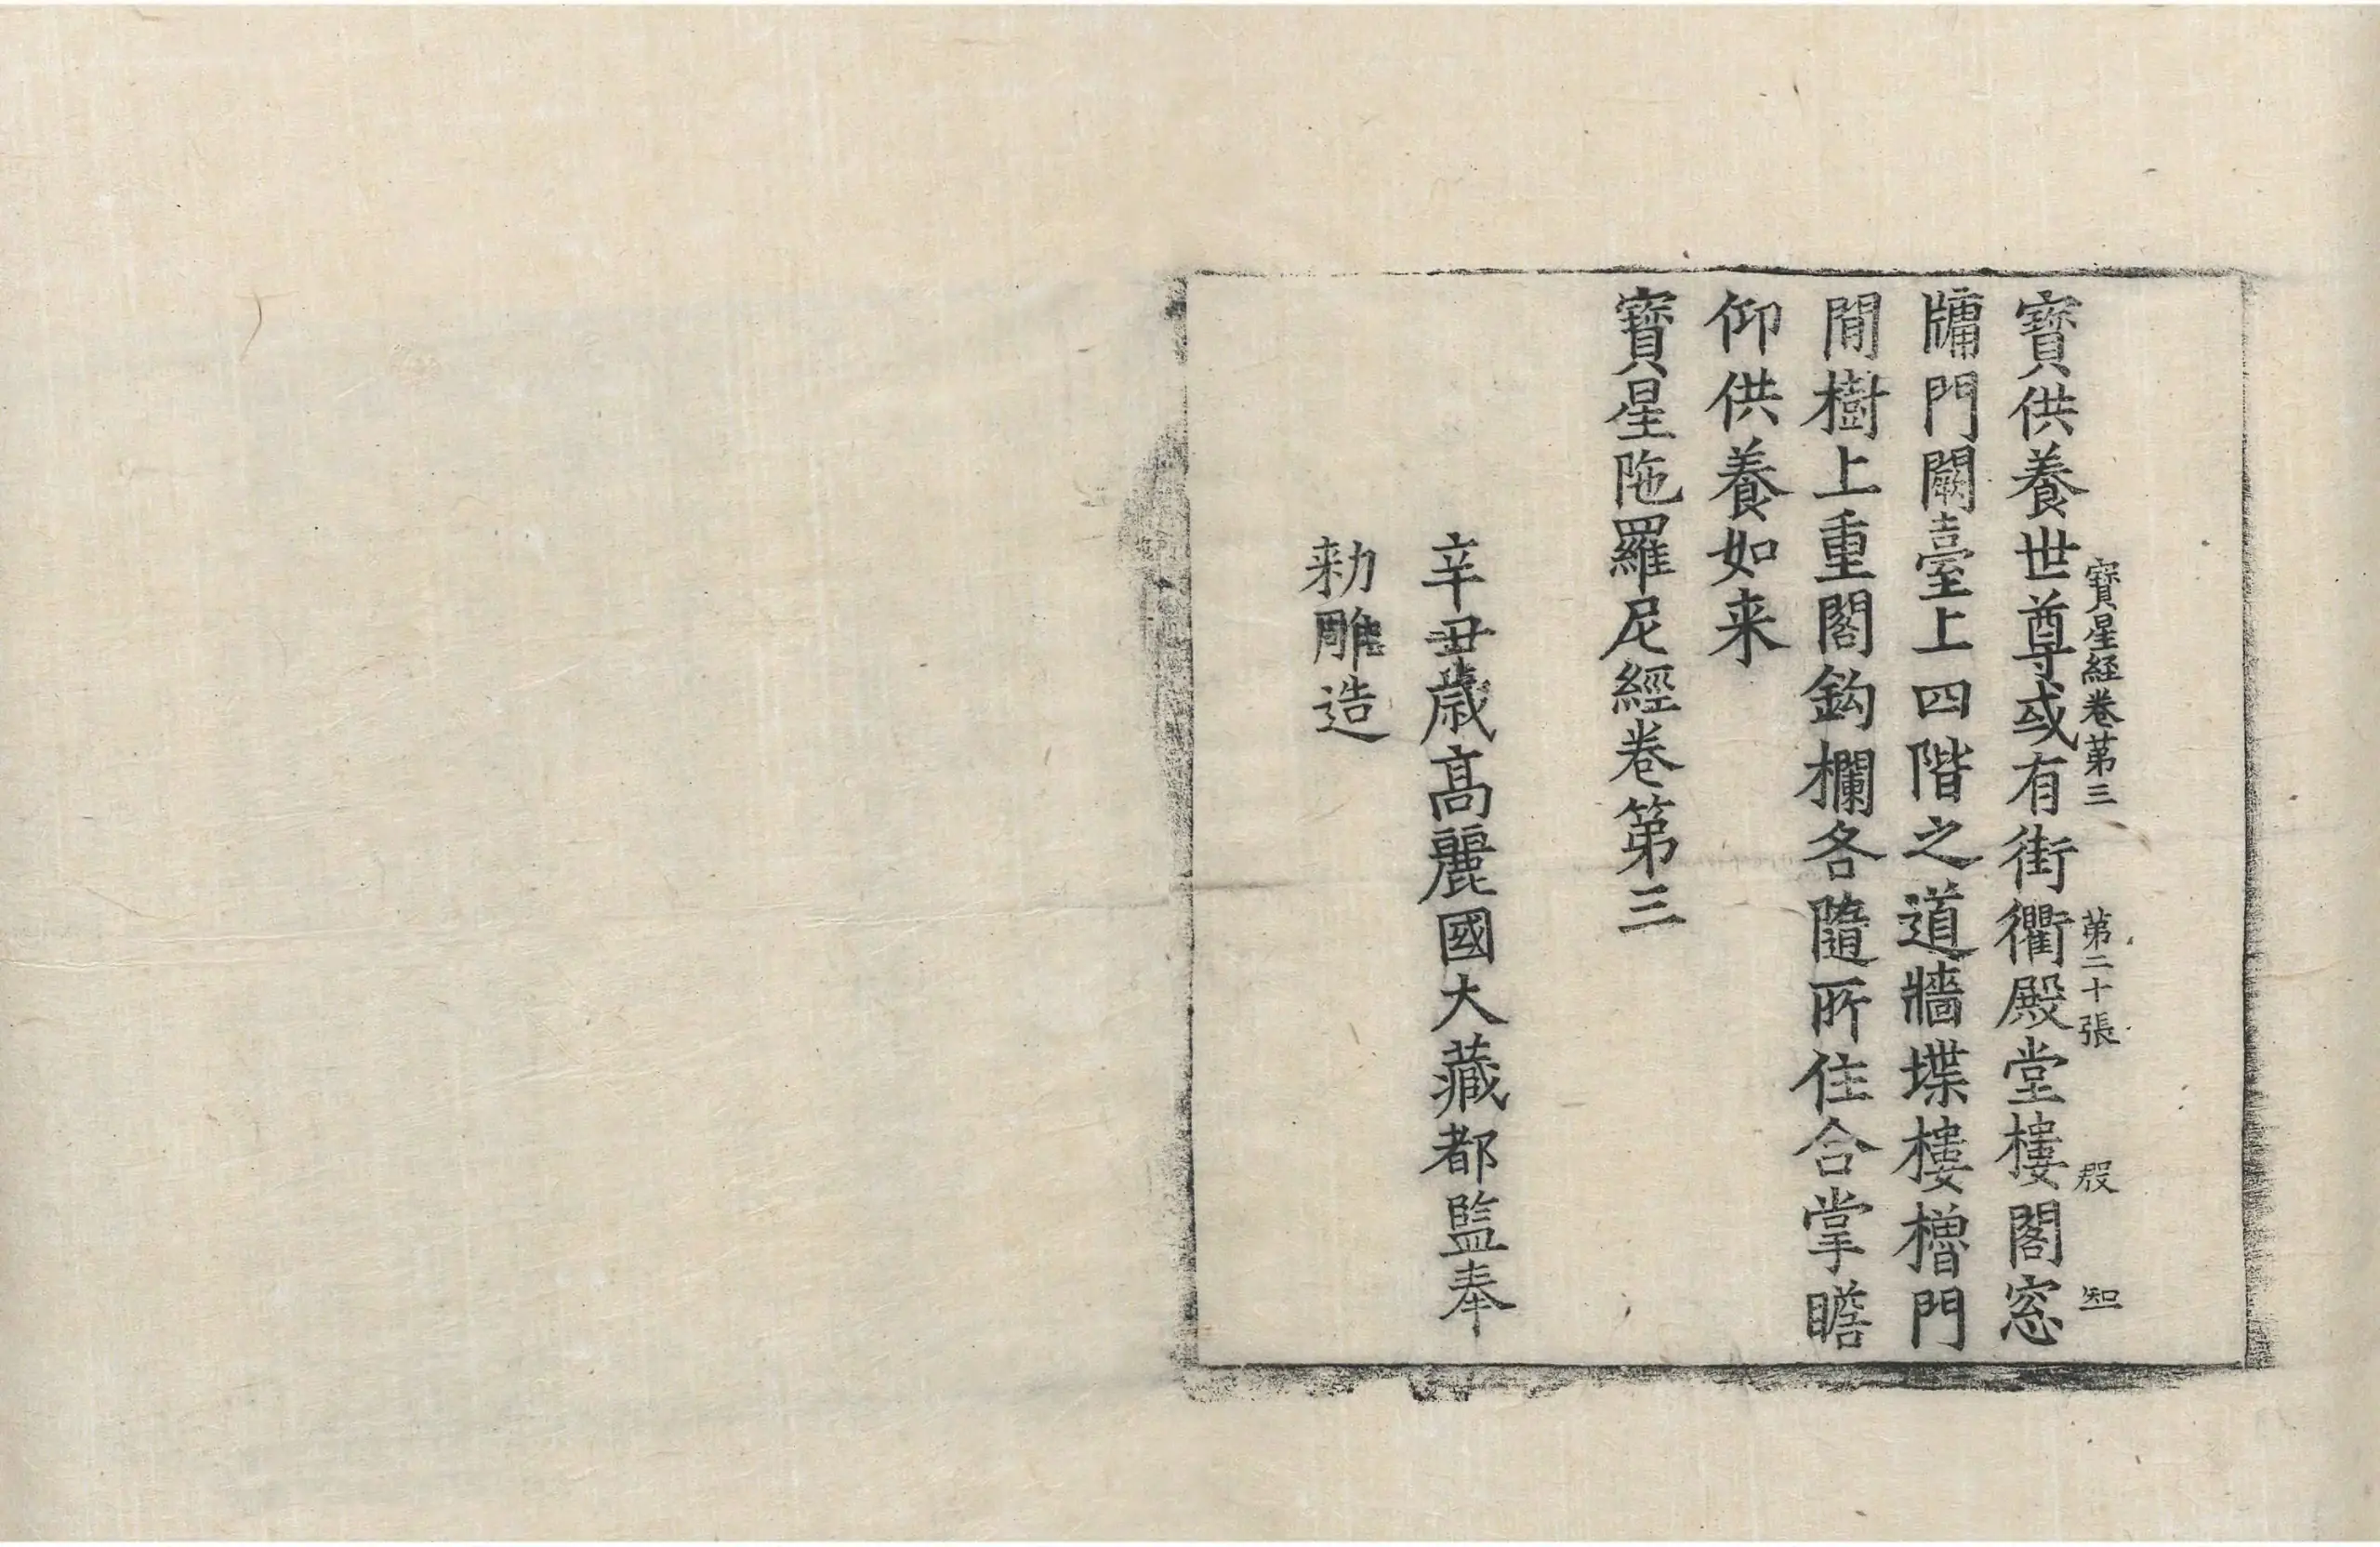 寶星経卷苐三 苐二十張 殷 知
寶供養世尊或有街衢殿堂樓閣窓
牗門闕臺上四階之道牆堞樓櫓門
閒樹上重閣鈎欄各隨所住合掌瞻
仰供養如来
寶星陁羅尼經卷第三
辛丑歲高麗國大藏都監奉
勑雕造